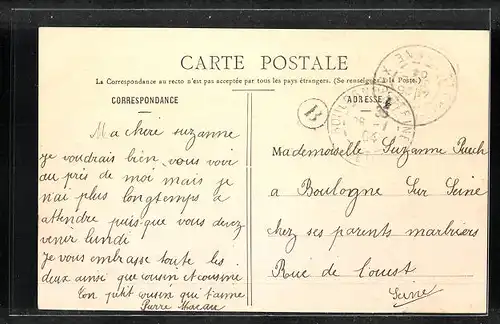 CARTE POSTALE
La Correspondance au recto n'est pas acceptée par tous les pays étrangers. (Se renseigner à la Poste.)
CORRESPONDANCE
ADRESSE
B
Ma chère suzanne
je voudrais bien vous voir
au près de moi mais je
n'ai plus longtemps a
attendre puis que vous devez
venir lundi
je vous embrasse toute les
deux ainsi que cousin et cousine
ton petit cousin qui t'aime
Pierre
Mademoiselle Suzanne
a Boulogne Sur Seine
chez ses parents marbriers
Rue de l'ouest
Seine